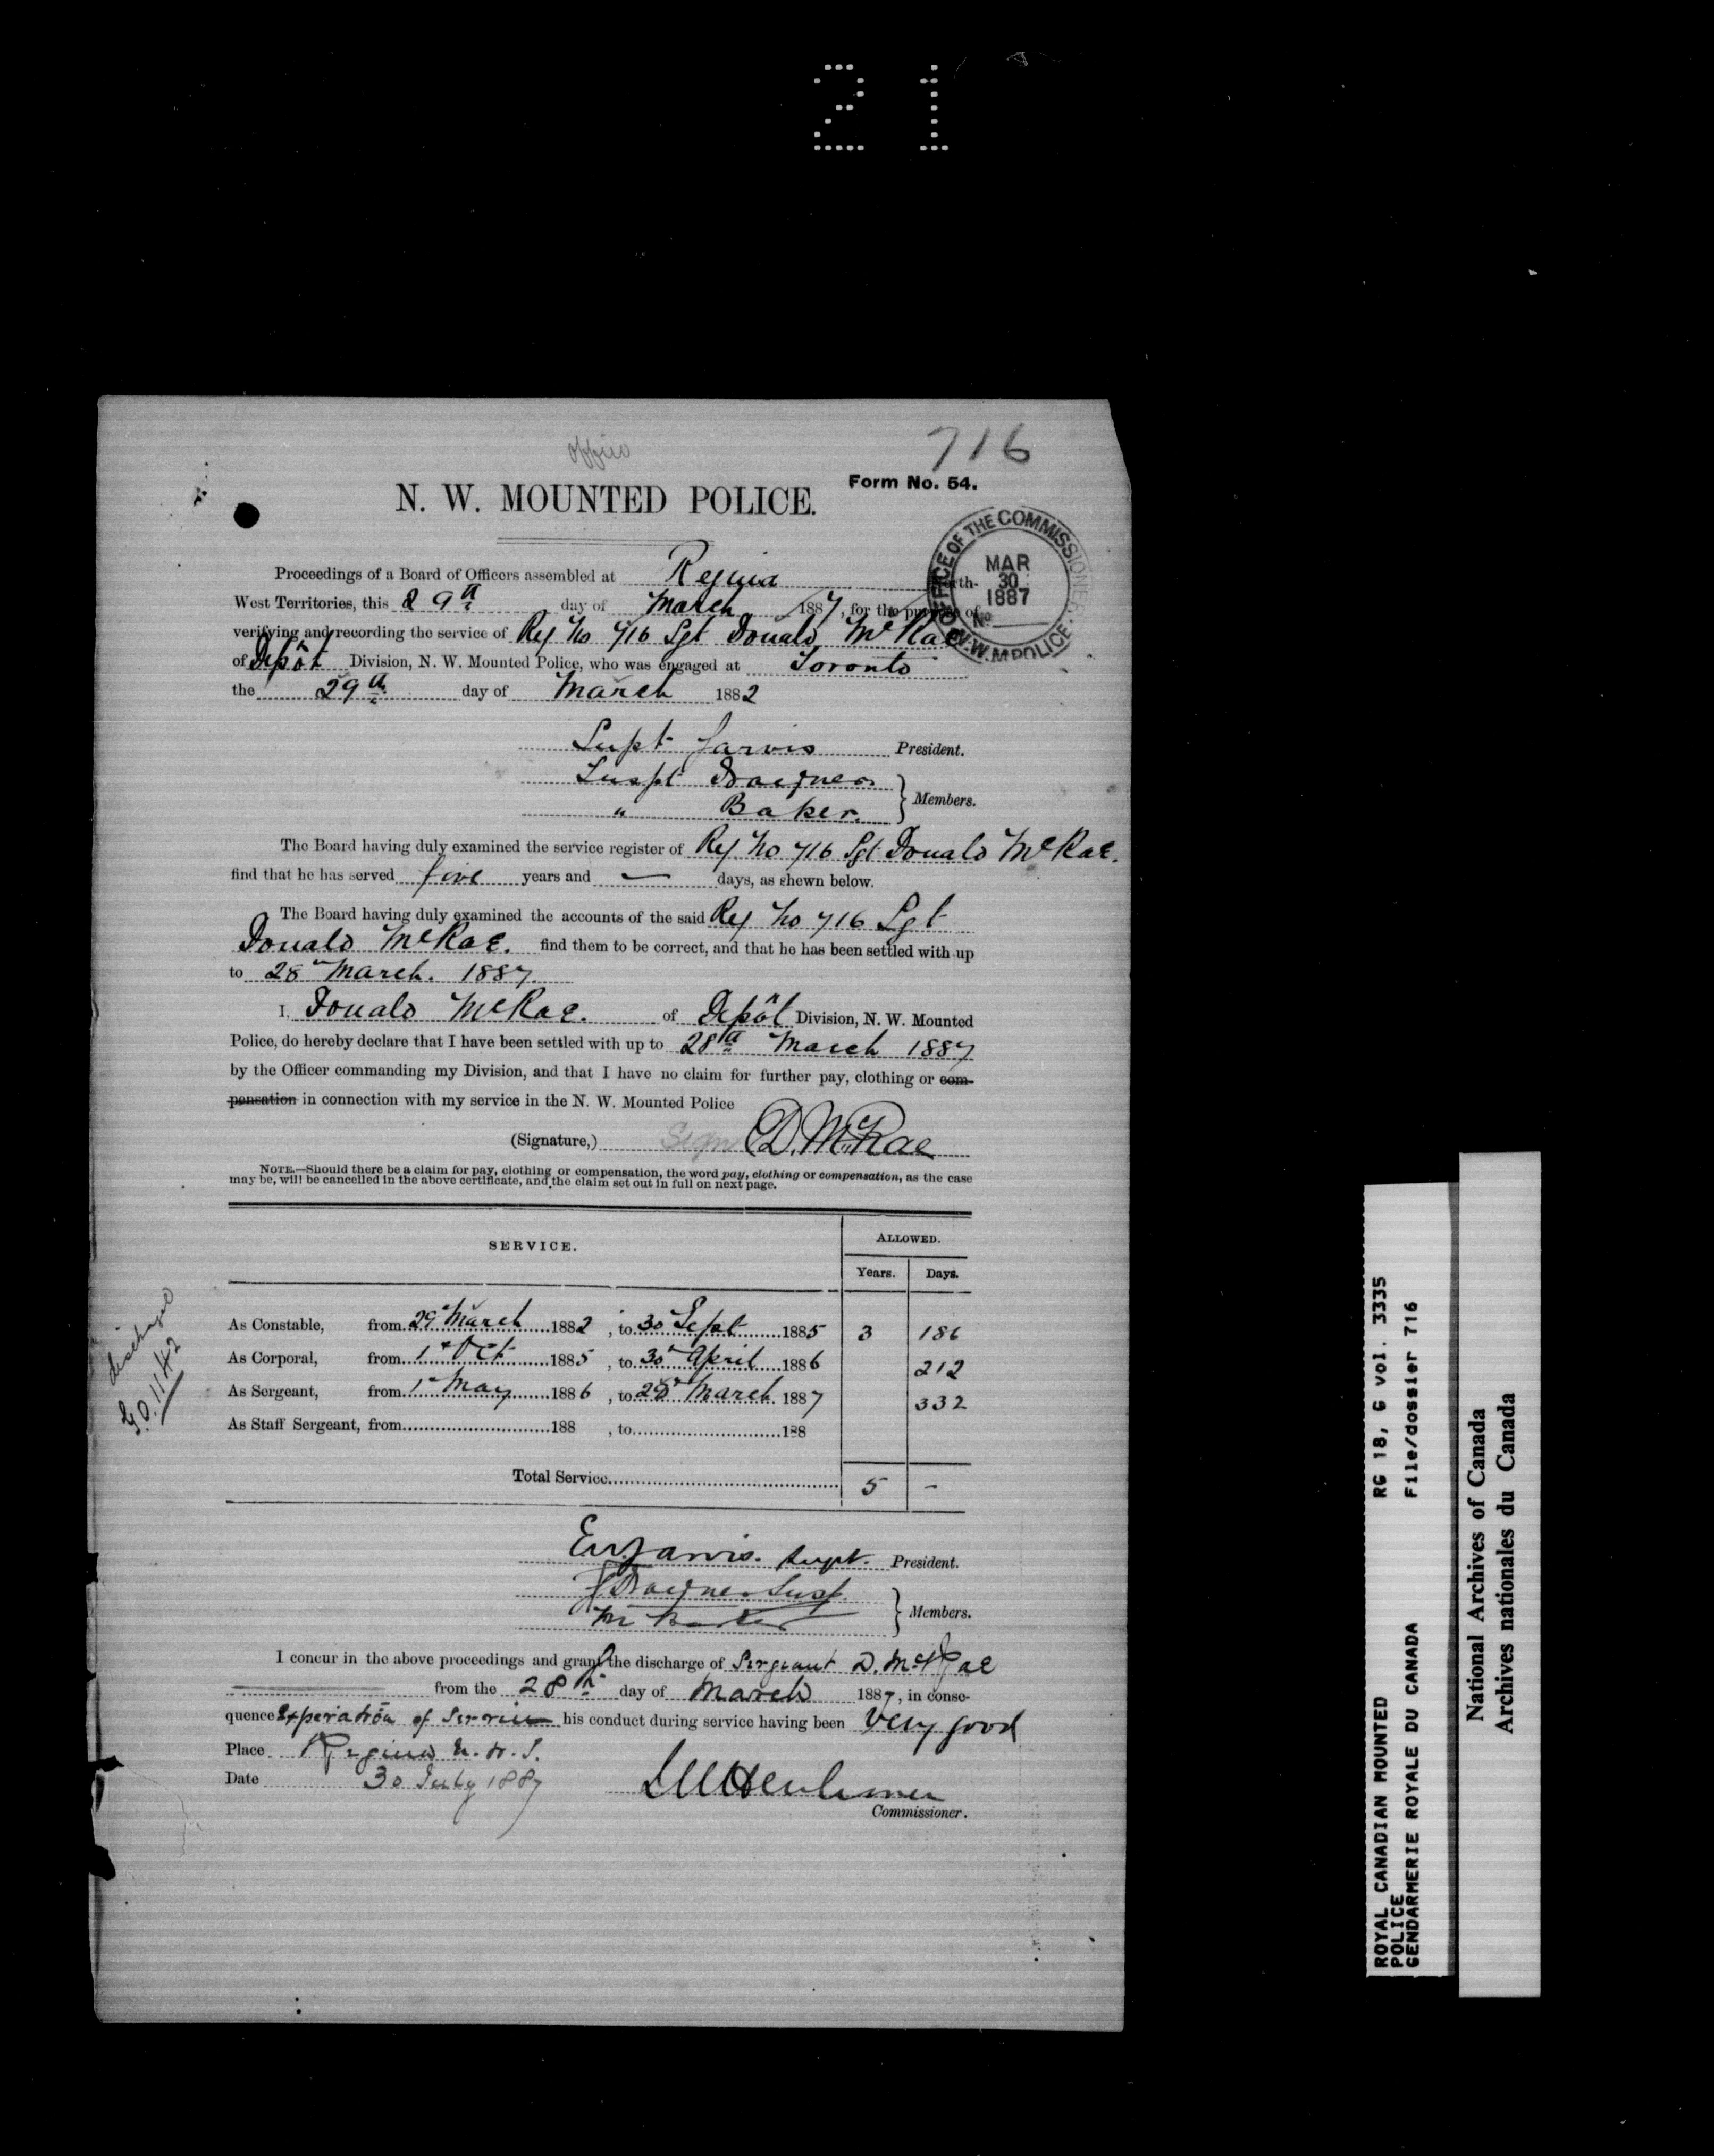 21
716
Form No. 54.
N. W. MOUNTED POLICE.
OFFICE OF THE COMMISSIONER N.W.M POLICE.
MAR
30
1887
No
Proceedings of a Board of Officers assembled at Regina North-
West Territories, this 29th day of March 1887, for the purpose of
verifying and recording the service of Reg No 716 Sgt Donald McRae
of Depôt Division, N. W. Mounted Police, who was engaged at Toronto
the 29th day of March 1882
Supt Jarvis President.
Inspt
" Baker. Members.
The Board having duly examined the service register of Reg No 716 Sgt Donald McRae.
find that he has served five years and — days, as shewn below.
The Board having duly examined the accounts of the said Reg No 716 Sgt
Donald McRae. find them to be correct, and that he has been settled with up
to 28th March. 1887.
I, Donald McRae. of Depôt Division, N. W. Mounted
Police, do hereby declare that I have been settled with up to 28th March 1887
by the Officer commanding my Division, and that I have no claim for further pay, clothing or com-
pensation in connection with my service in the N. W. Mounted Police
(Signature,) Sign D. McRae
NOTE.—Should there be a claim for pay, clothing or compensation, the word pay, clothing or compensation, as the case
may be, will be cancelled in the above certificate, and the claim set out in full on next page.
SERVICE.
ALLOWED.
Years. Days.
As Constable, from 29th March 1882, to 30 Sept 1885 3 186
As Corporal, from 1st Oct 1885, to 30th April 1886 212
As Sergeant, from 1st May 1886, to 28th March 1887 332
As Staff Sergeant, from 188 , to 188
Total Service 5 -
discharged
G.O. 1142
Jarvis. Supt. President.
Members.
I concur in the above proceedings and grant the discharge of Sergeant D. McRae
from the 28th day of March 1887, in conse-
quence Expiration of Service his conduct during service having been very good
Place Regina N.W.T.
Date 30 July 1887
Commissioner.
ROYAL CANADIAN MOUNTED
POLICE
GENDARMERIE ROYALE DU CANADA
RG 18, G vol. 3335
File/dossier 716
National Archives of Canada
Archives nationales du Canada